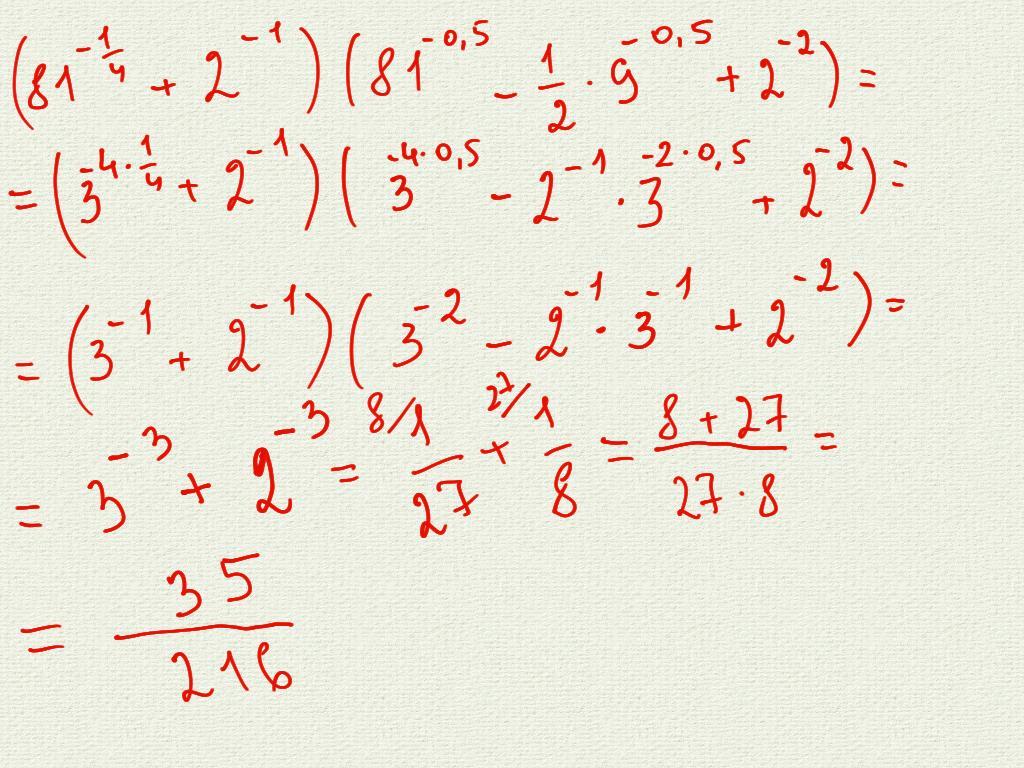 (81^{-1/4} + 2^{-1}) (81^{-0,5} - \frac{1}{2} · 9^{-0,5} + 2^{-2}) =
= (3^{-4·1/4} + 2^{-1}) (3^{-4·0,5} - 2^{-1} · 3^{-2·0,5} + 2^{-2}) =
= (3^{-1} + 2^{-1}) (3^{-2} - 2^{-1} · 3^{-1} + 2^{-2}) =
= 3^{-3} + 2^{-3} = ^{8/}\frac{1}{27} + ^{27/}\frac{1}{8} = \frac{8 + 27}{27 · 8} =
= \frac{35}{216}